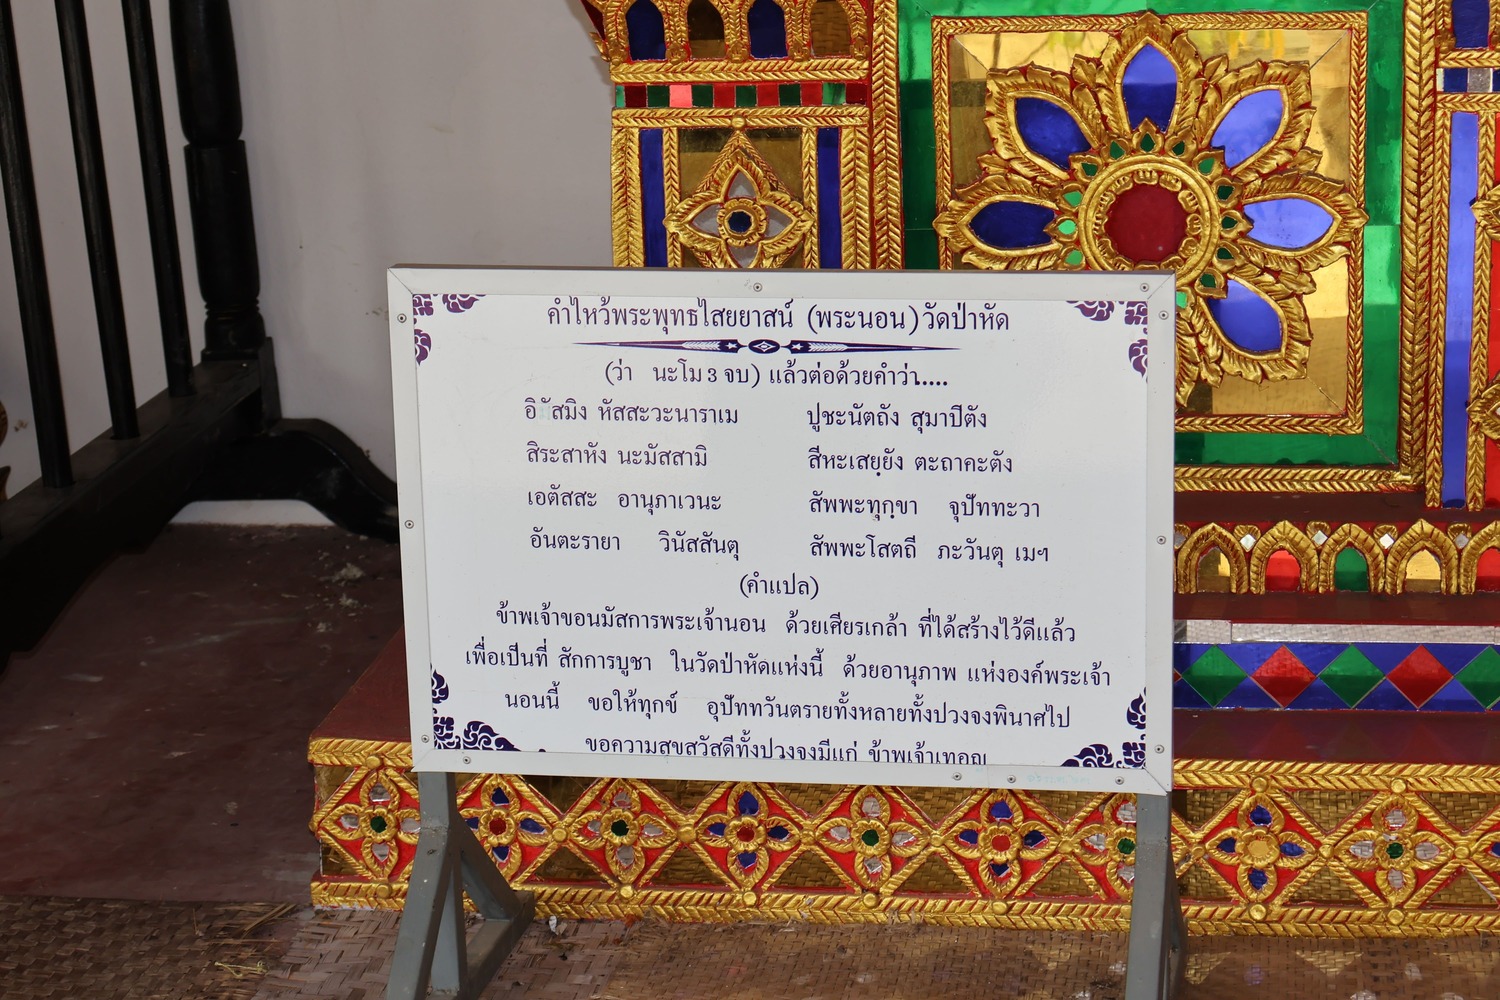 คำไหว้พระพุทธไสยยาสน์ (พระนอน) วัดป่าหัด
(ว่า นะโม 3 จบ) แล้วต่อด้วยคำว่า.....
หัสสะวะนาราเม ปูชะนัตถัง สุมาปีตัง
สิระสาหัง นะมัสสามิ สีหะเสยฺยัง ตะถาคะตัง
เอตัสสะ อานุภาเวนะ สัพพะทุกฺขา จุปัททะวา
อันตะรายา วินัสสันตุ สัพพะโสตถี ภะวันตุ เมฯ
(คำแปล)
ข้าพเจ้าขอนมัสการพระเจ้านอน ด้วยเศียรเกล้า ที่ได้สร้างไว้ดีแล้ว
เพื่อเป็นที่ สักการบูชา ในวัดป่าหัดแห่งนี้ ด้วยอานุภาพ แห่งองค์พระเจ้า
นอนนี้ ขอให้ทุกข์ อุปัททวันตรายทั้งหลายทั้งปวงจงพินาศไป
ขอความสุขสวัสดีทั้งปวงจงมีแก่ ข้าพเจ้าเทอญ